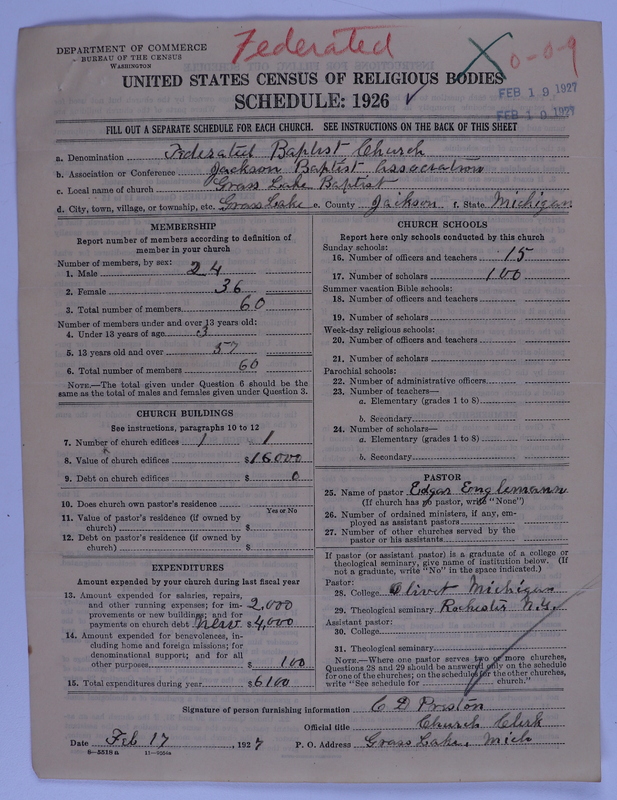 Federated
0-0-9
DEPARTMENT OF COMMERCE
BUREAU OF THE CENSUS
WASHINGTON
UNITED STATES CENSUS OF RELIGIOUS BODIES
SCHEDULE: 1926 ✓
FEB 19 1927
FEB 19 1927
FILL OUT A SEPARATE SCHEDULE FOR EACH CHURCH. SEE INSTRUCTIONS ON THE BACK OF THIS SHEET
a. Denomination Federated Baptist Church
b. Association or Conference Jackson Baptist Association
c. Local name of church Grass Lake Baptist
d. City, town, village, or township, etc. Grass Lake e. County Jackson f. State Michigan
MEMBERSHIP
Report number of members according to definition of
member in your church
Number of members, by sex:
1. Male 24
2. Female 36
3. Total number of members 60
Number of members under and over 13 years old:
4. Under 13 years of age 3
5. 13 years old and over 57
6. Total number of members 60
NOTE.—The total given under Question 6 should be the
same as the total of males and females given under Question 3.
CHURCH BUILDINGS
See instructions, paragraphs 10 to 12
7. Number of church edifices 1 1
8. Value of church edifices $16000
9. Debt on church edifices $ 0
10. Does church own pastor's residence
Yes or No
11. Value of pastor's residence (if owned by
church) $
12. Debt on pastor's residence (if owned by
church) $
EXPENDITURES
Amount expended by your church during last fiscal year
13. Amount expended for salaries, repairs,
and other running expenses; for im- 2,000
provements or new buildings; and for
payments on church debt new $ 4,000
14. Amount expended for benevolences, in-
cluding home and foreign missions; for
denominational support; and for all
other purposes $ 100
15. Total expenditures during year $6100
CHURCH SCHOOLS
Report here only schools conducted by this church
Sunday schools:
16. Number of officers and teachers 15
17. Number of scholars 100
Summer vacation Bible schools:
18. Number of officers and teachers
19. Number of scholars
Week-day religious schools:
20. Number of officers and teachers
21. Number of scholars
Parochial schools:
22. Number of administrative officers
23. Number of teachers—
a. Elementary (grades 1 to 8)
b. Secondary
24. Number of scholars—
a. Elementary (grades 1 to 8)
b. Secondary
PASTOR
25. Name of pastor Edgar Englemann
(If church has no pastor, write "None")
26. Number of ordained ministers, if any, em-
ployed as assistant pastors
27. Number of other churches served by the
pastor or his assistants
If pastor (or assistant pastor) is a graduate of a college or
theological seminary, give name of institution below. (If
not a graduate, write "No" in the space indicated.)
Pastor:
28. College Olivet Michigan
29. Theological seminary Rochester N.Y.
Assistant pastor:
30. College
31. Theological seminary
NOTE.—Where one pastor serves two or more churches,
Questions 28 and 29 should be answered only on the schedule
for one of the churches; on the schedules for the other churches,
write "See schedule for church."
Signature of person furnishing information C D Preston
Official title Church Clerk
Date Feb 17, 1927 P. O. Address Grass Lake, Mich
8—5518a 11—9556a